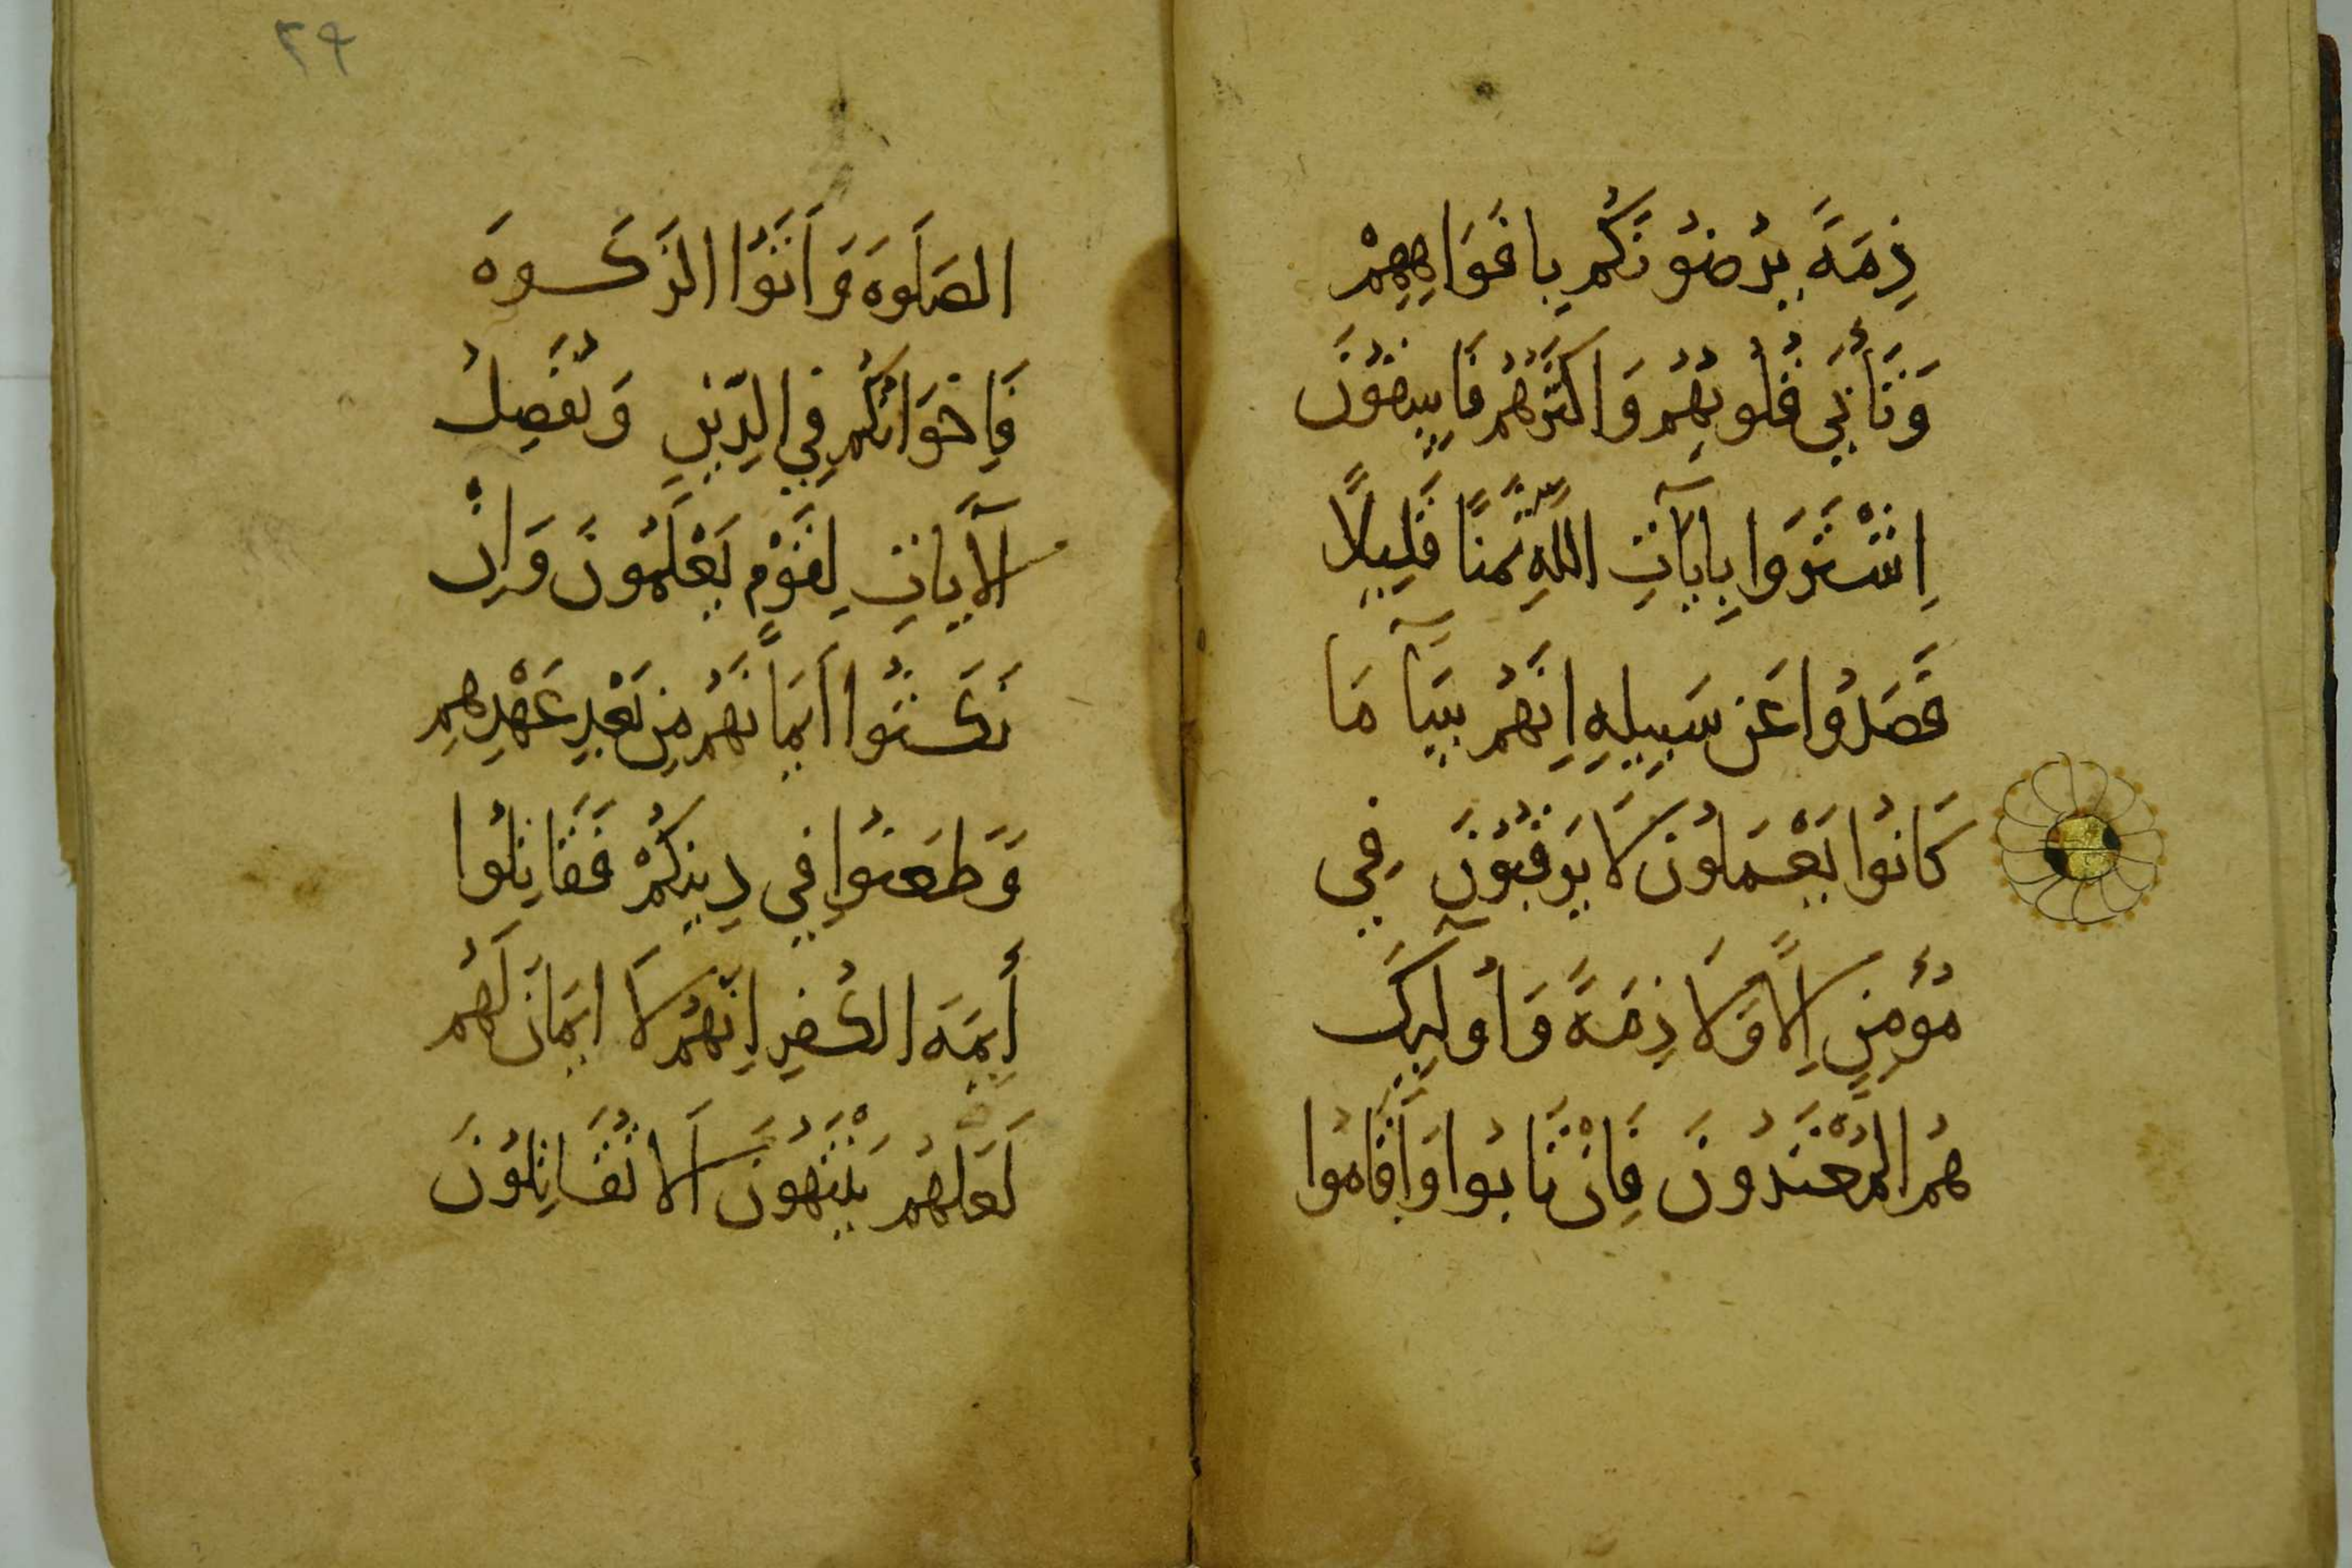 ذِمَّةً يُرْضُونَكُم بِأَفْوَاهِهِمْ
وَتَأْبَى قُلُوبُهُمْ وَأَكْثَرُهُمْ فَاسِقُونَ
اِشْتَرَوْا بِآيَاتِ اللَّهِ ثَمَنًا قَلِيلًا
فَصَدُّوا عَن سَبِيلِهِ إِنَّهُمْ سَآءَ مَا
كَانُوا يَعْمَلُونَ لَا يَرْقُبُونَ فِي
مُؤْمِنٍ إِلًّا وَلَا ذِمَّةً وَأُولَٰٓئِكَ
هُمُ الْمُعْتَدُونَ فَإِنْ تَابُوا وَأَقَامُوا
٢٩
الصَّلَوةَ وَآتَوُا الزَّكَوةَ
فَإِخْوَانُكُمْ فِي الدِّينِ وَنُفَصِّلُ
الْآيَاتِ لِقَوْمٍ يَعْلَمُونَ وَإِنْ
نَكَثُوا أَيْمَانَهُمْ مِن بَعْدِ عَهْدِهِمْ
وَطَعَنُوا فِي دِينِكُمْ فَقَاتِلُوا
أَئِمَّةَ الْكُفْرِ إِنَّهُمْ لَا أَيْمَانَ لَهُمْ
لَعَلَّهُمْ يَنْتَهُونَ أَلَا تُقَاتِلُونَ